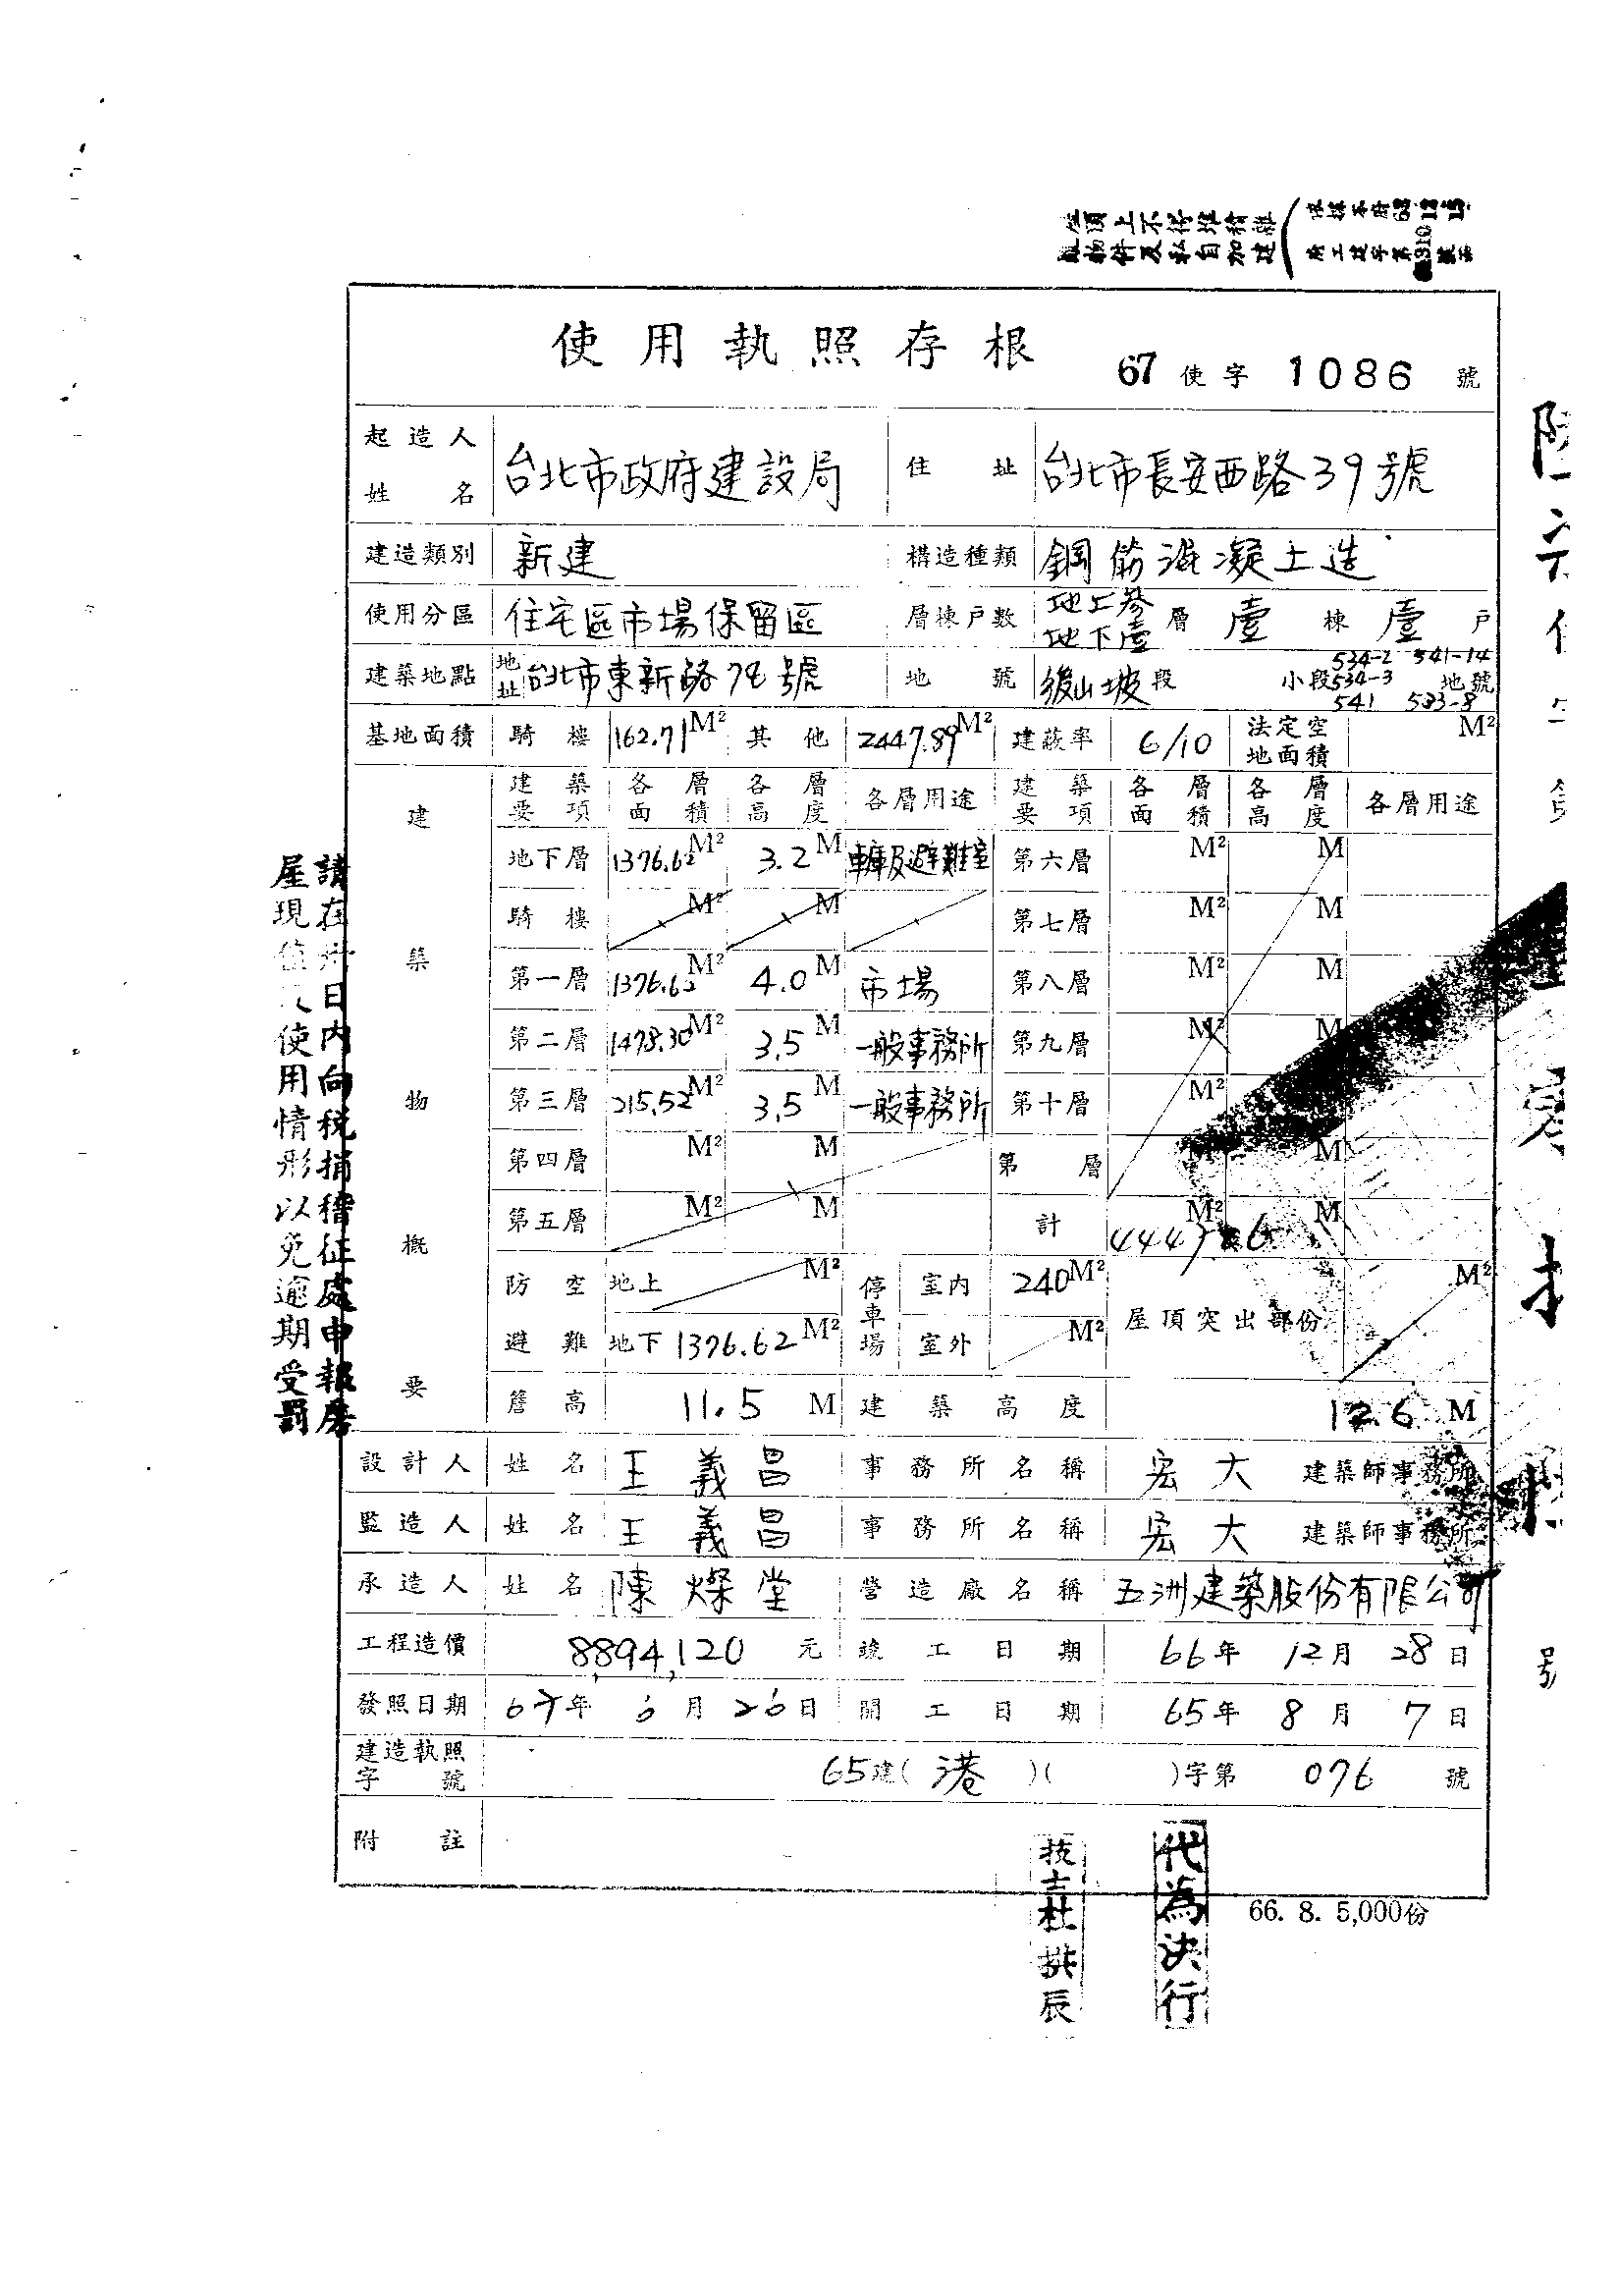 屋頂上不得堆積雜
物件及私自加建
使用執照存根
67 使字 1086 號
起造人姓名 台北市政府建設局 住址 台北市長安西路39號
建造類別 新建 構造種類 鋼筋混凝土造
使用分區 住宅區市場保留區 層棟戶數 地上參 地下壹 層 壹 棟 壹 戶
建築地點 地址 台北市東新路78號 地號 後山坡 段 小段 534-2 541-14 534-3 541 533-8 地號
基地面積 騎樓 162.71 M² 其他 2447.89 M² 建蔽率 6/10 法定空地面積 M²
建築物概要
建築要項 各層面積 各層高度 各層用途 建築要項 各層面積 各層高度 各層用途
地下層 1376.62 M² 3.2 M 車庫及避難室 第六層 M² M
騎樓 M² M 第七層 M² M
第一層 1376.62 M² 4.0 M 市場 第八層 M² M
第二層 1478.30 M² 3.5 M 一般事務所 第九層 M² M
第三層 215.52 M² 3.5 M 一般事務所 第十層 M²
第四層 M² M 第 層 M² M
第五層 M² M 計 M² M
防空避難 地上 M² 停車場 室內 240 M² 屋頂突出部份 M²
地下 1376.62 M² 室外 M²
簷高 11.5 M 建築高度 12.6 M
設計人 姓名 王義昌 事務所名稱 宏大 建築師事務所
監造人 姓名 王義昌 事務所名稱 宏大 建築師事務所
承造人 姓名 陳燦堂 營造廠名稱 五洲建築股份有限公司
工程造價 8,894,120 元 竣工日期 66年 12月 28日
發照日期 67年 6月 26日 開工日期 65年 8月 7日
建造執照字號 65建(港)( )字第 076 號
附註
技士杜拱辰
代為決行
66. 8. 5,000份
請在卅日內向稅捐稽征處申報房
屋現值及使用情形以免逾期受罰
號